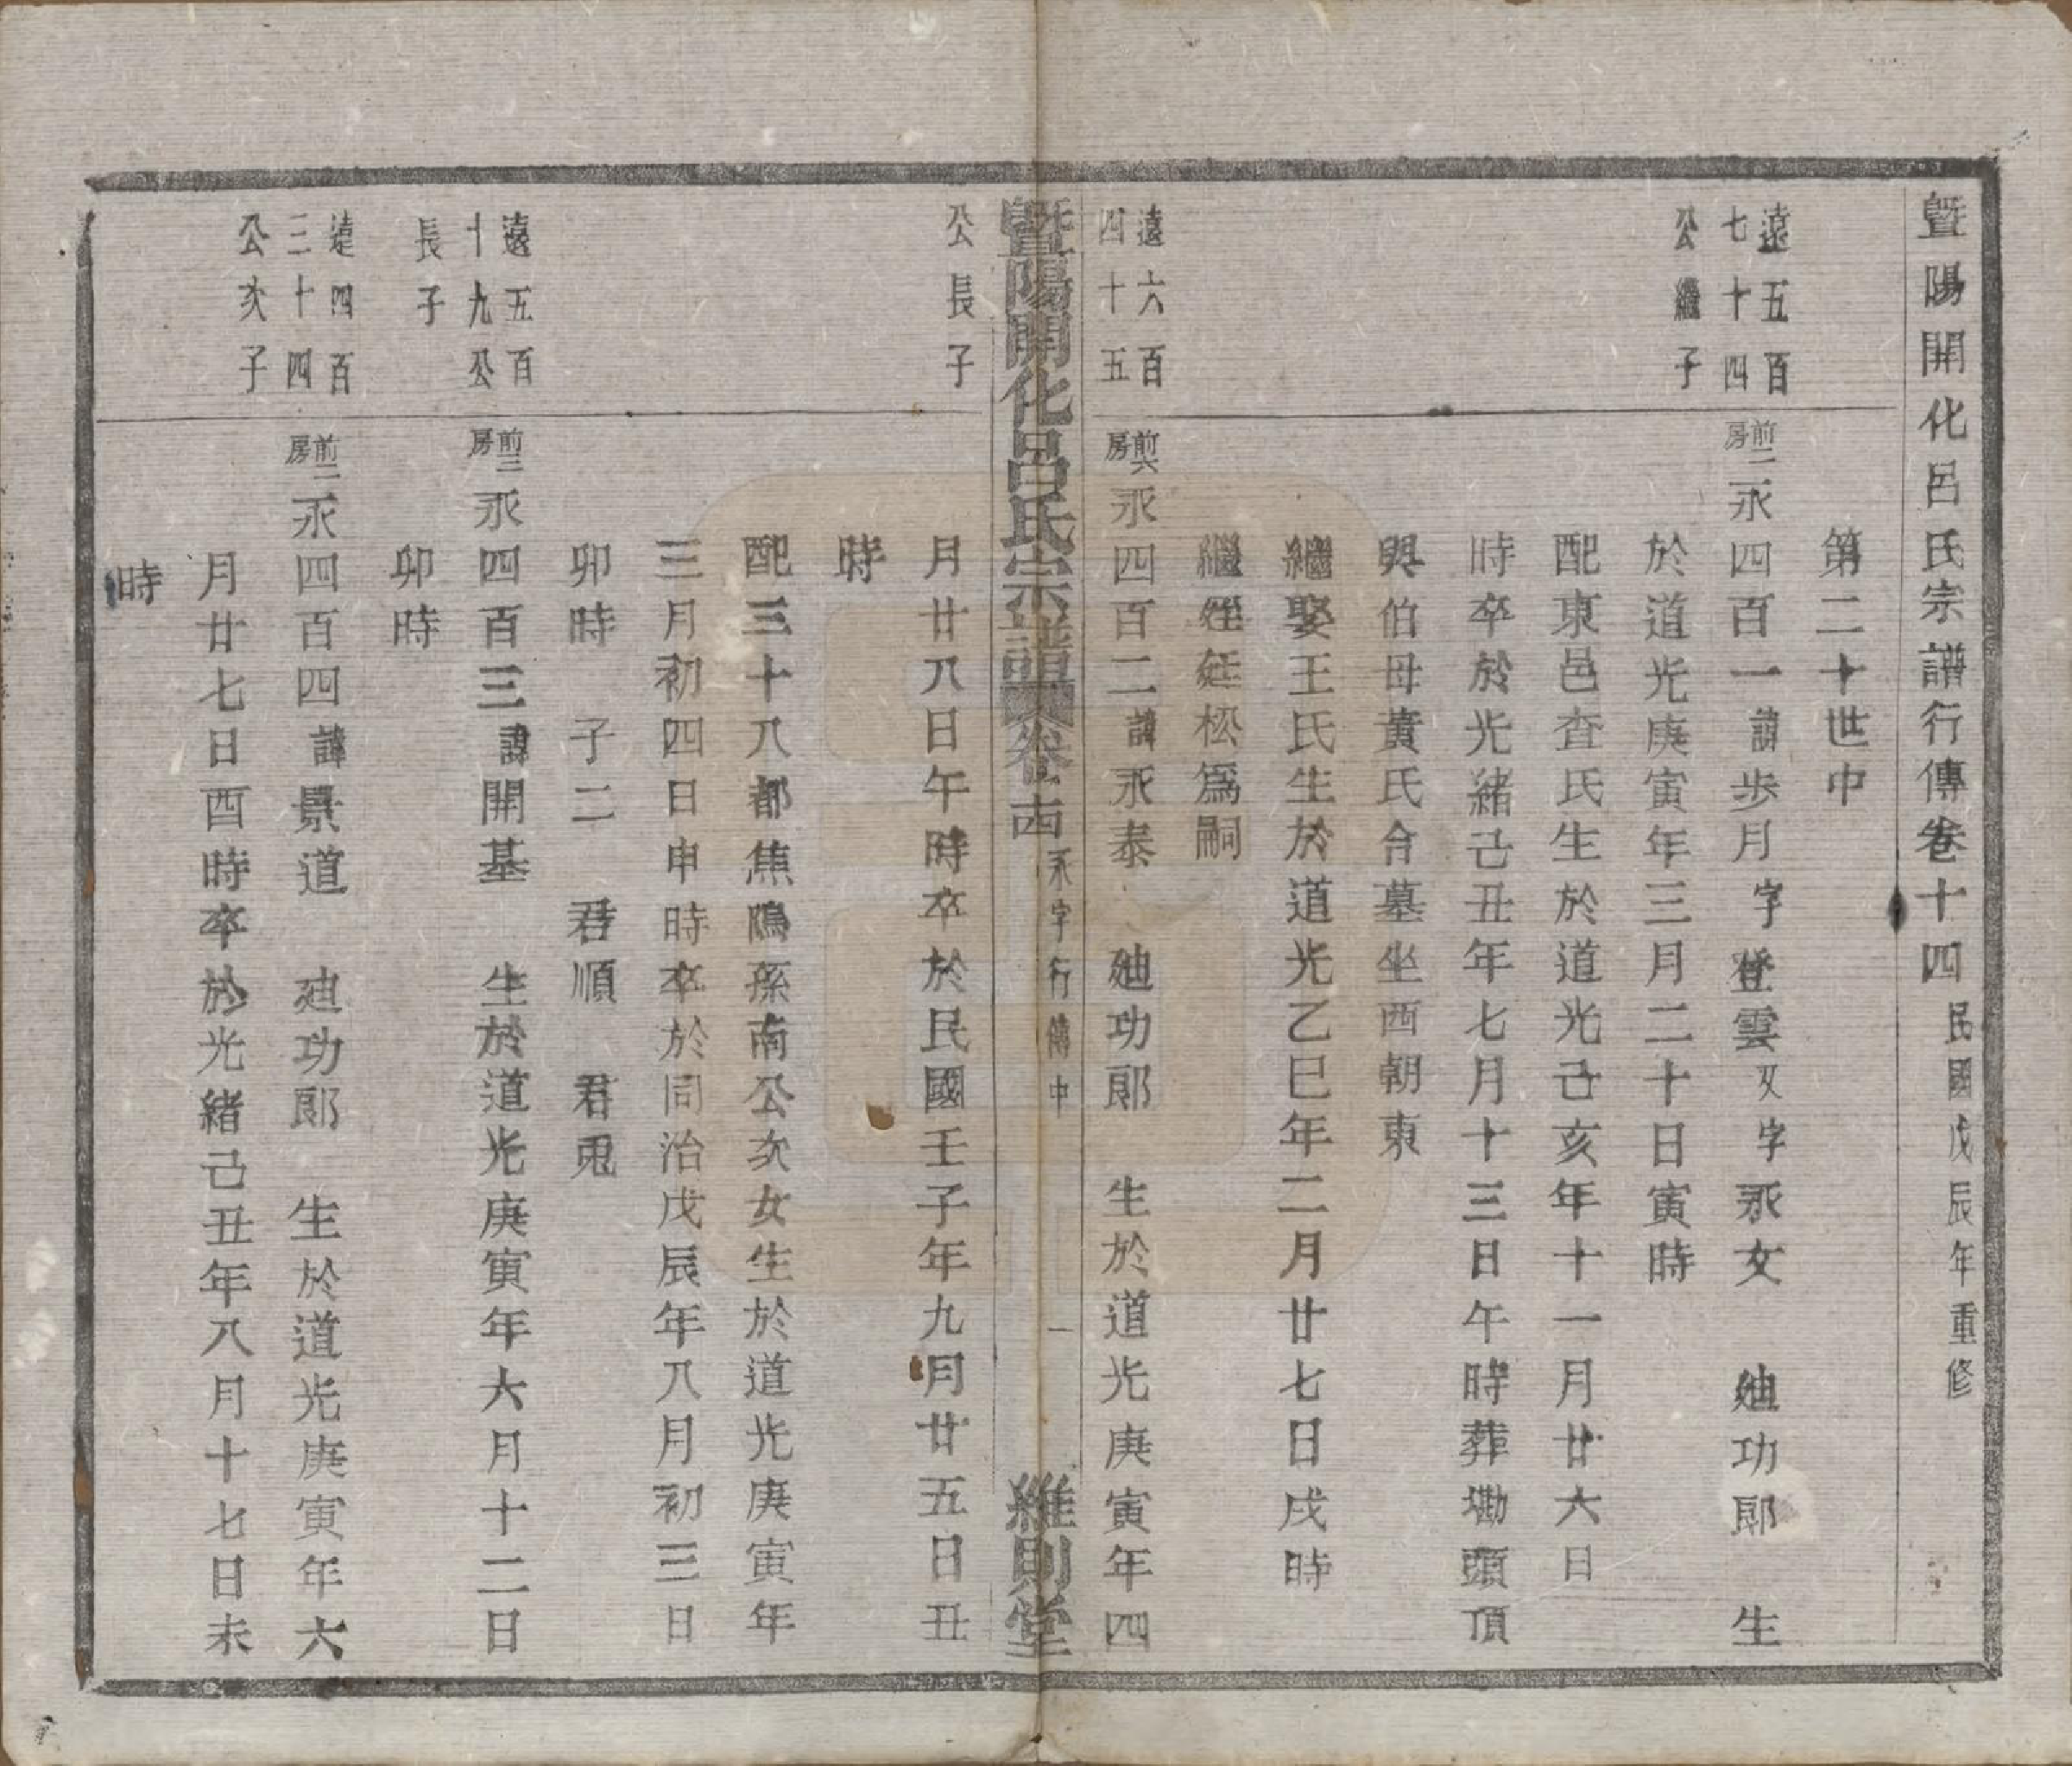 暨陽開化呂氏宗譜行傳卷十四 民國戊辰年重修
第二十世中
遠五百
七十四
公繼子
前二房 永四百一 諱步月 字登雲 又字永文 廸功郎 生
於道光庚寅年三月二十日寅時
配東邑査氏生於道光己亥年十一月廿六日
時卒於光緒己丑年七月十三日午時葬坳頭頂
與伯母黃氏合墓坐西朝東
繼娶王氏生於道光乙巳年二月廿七日戌時
繼姪廷松爲嗣
遠六百
四十五
前六房 永四百二 諱永泰 廸功郎 生於道光庚寅年四
暨陽開化呂氏宗譜 卷十四 永字行傳中 一 維則堂
公長子
月廿八日午時卒於民國壬子年九月廿五日丑
時
配三十八都焦隖孫南公次女生於道光庚寅年
三月初四日申時卒於同治戊辰年八月初三日
卯時 子二 君順 君兎
遠五百
十九公
長子
前三房 永四百三 諱開基 生於道光庚寅年六月十二日
卯時
遠四百
三十四
公次子
前二房 永四百四 諱景道 廸功郎 生於道光庚寅年六
月廿七日酉時卒於光緒己丑年八月十七日未
時